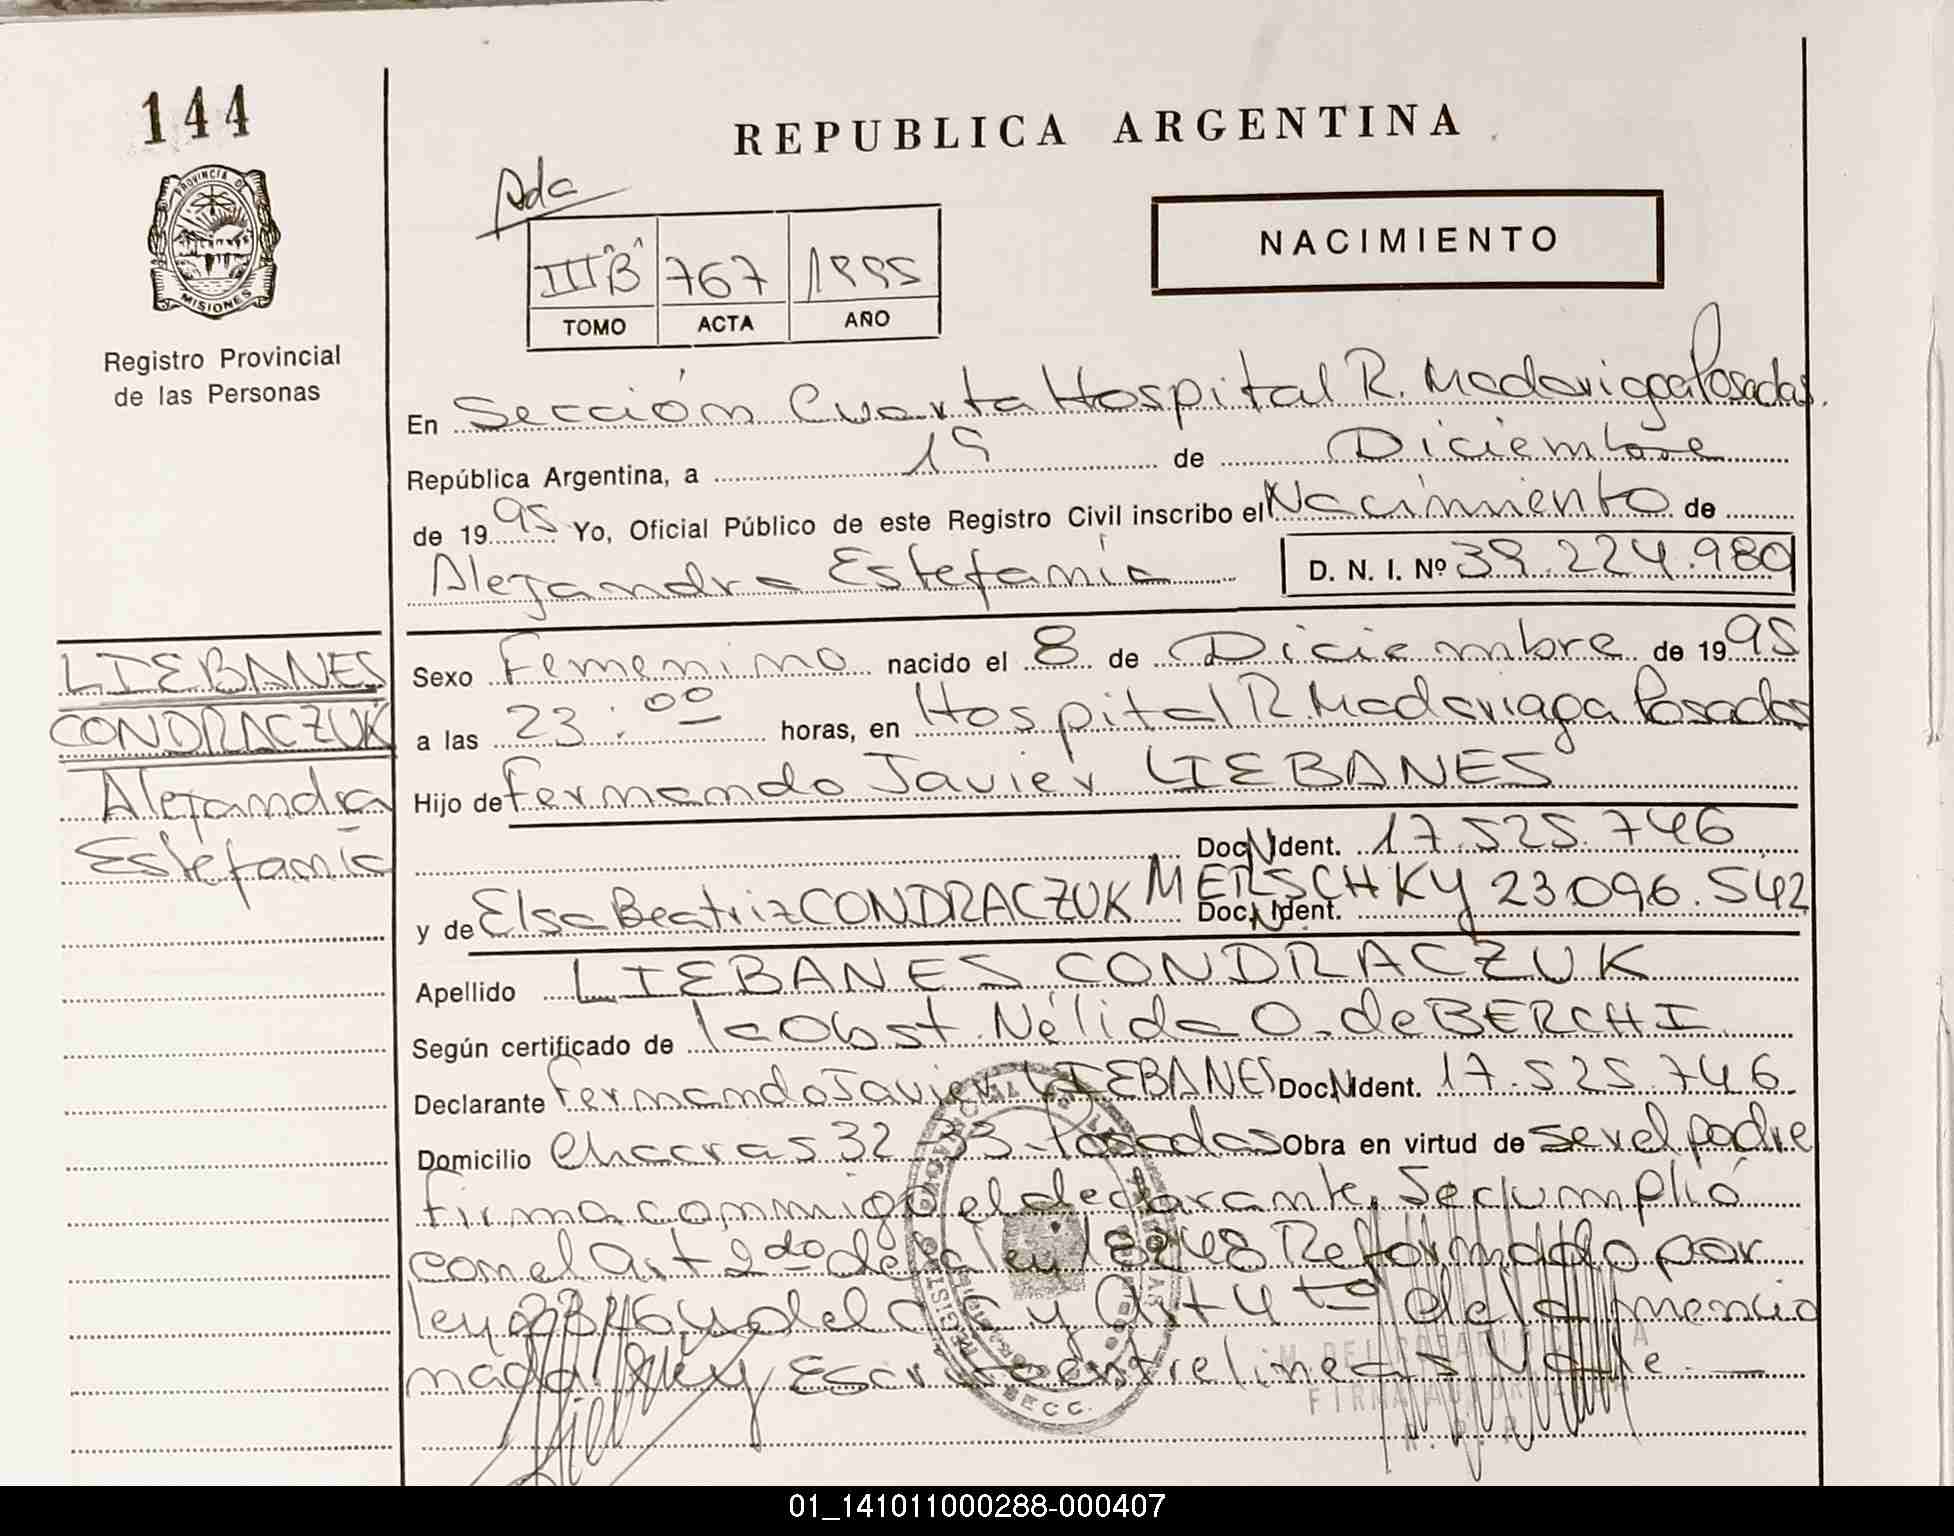 144
PROVINCIA DE
MISIONES
Registro Provincial
de las Personas
REPUBLICA ARGENTINA
Ada
NACIMIENTO
III "B" 767 1995
TOMO ACTA AÑO
En Sección Cuarta Hospital R. Madariaga Posadas.
República Argentina, a 19 de Diciembre
de 1995 Yo, Oficial Público de este Registro Civil inscribo el Nacimiento de
Alejandra Estefanía D. N. I. Nº 39.224.980
LIEBANES
CONDRACZUK
Alejandra
Estefanía
Sexo Femenino nacido el 8 de Diciembre de 1995
a las 23:00 horas, en Hospital R. Madariaga Posadas
Hijo de Fernando Javier LIEBANES
Doc. N Ident. 17.525.746
y de Elsa Beatriz CONDRACZUK MERSCHKY Doc. N Ident. 23096.542
Apellido LIEBANES CONDRACZUK
Según certificado de la Obst. Nélida O. de BERCHI
Declarante Fernando Javier LIEBANES Doc. N Ident. 17.525.746
Domicilio Chacras 32 33 - Posadas Obra en virtud de ser el padre
firma conmigo el declarante, Se cumplió
con el Art 2do de la ley 18248 Reformado por
ley 23264 del CC y Art 4to de la mencio
nada ley, Escrito entre lineas Vale
FIRMA AUTORIZADA
01_141011000288-000407